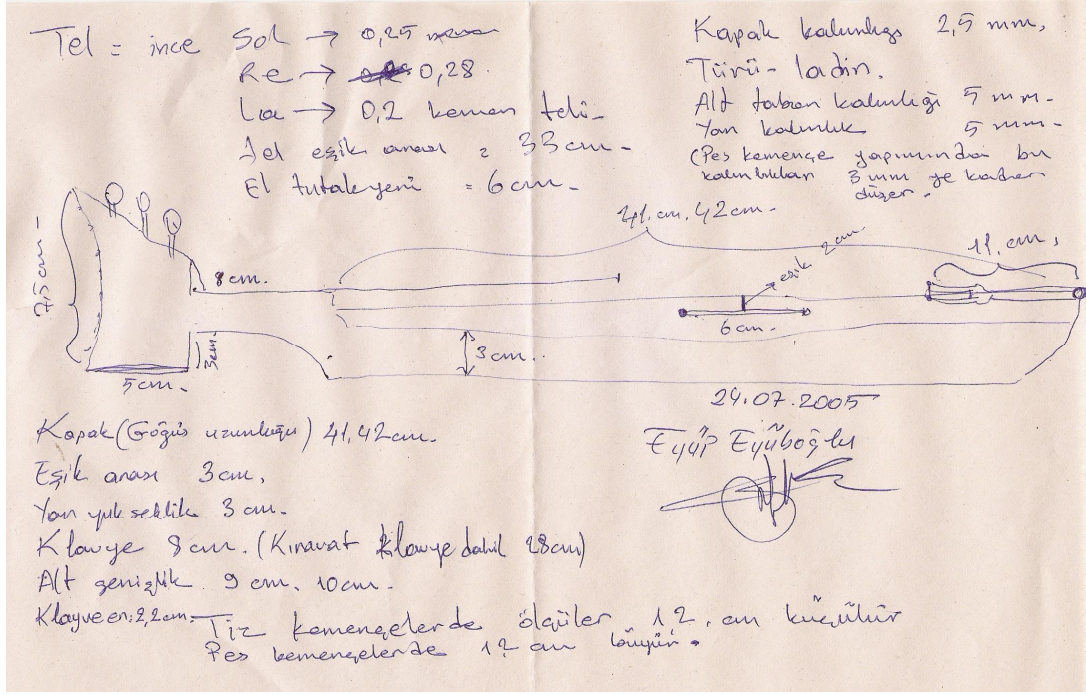 Tel = ince Sol → 0,25
Re → 0,28
La → 0,2 keman teli-
Tel eşik arası = 33 cm -
El tutakyeni = 6 cm -
Kapak kalınlığı 2,5 mm,
Türü - ladin.
Alt taban kalınlığı 5 mm -
Yan kalınlık 5 mm -
(Pes kemençe yapımında bu
kalınlıklar 3 mm ye kadar
düşer.
41.cm.42cm.
11.cm,
7,5cm-
8cm.
3cm.
5cm-
3cm.
eşik 2cm.
6cm-
24.07.2005
Eyüp Eyüboğlu
Kapak (Göğüs uzunluğu) 41,42cm.
Eşik arası 3cm,
Yan yükseklik 3 cm-
Klavye 8cm. (Kıravat Klavye dahil 28cm)
Alt genişlik 9 cm. 10cm-
Klayve en: 2,2cm.
Tiz kemençelerde ölçüler 12.cm küçülür
Pes kemençelerde 12 cm büyür.